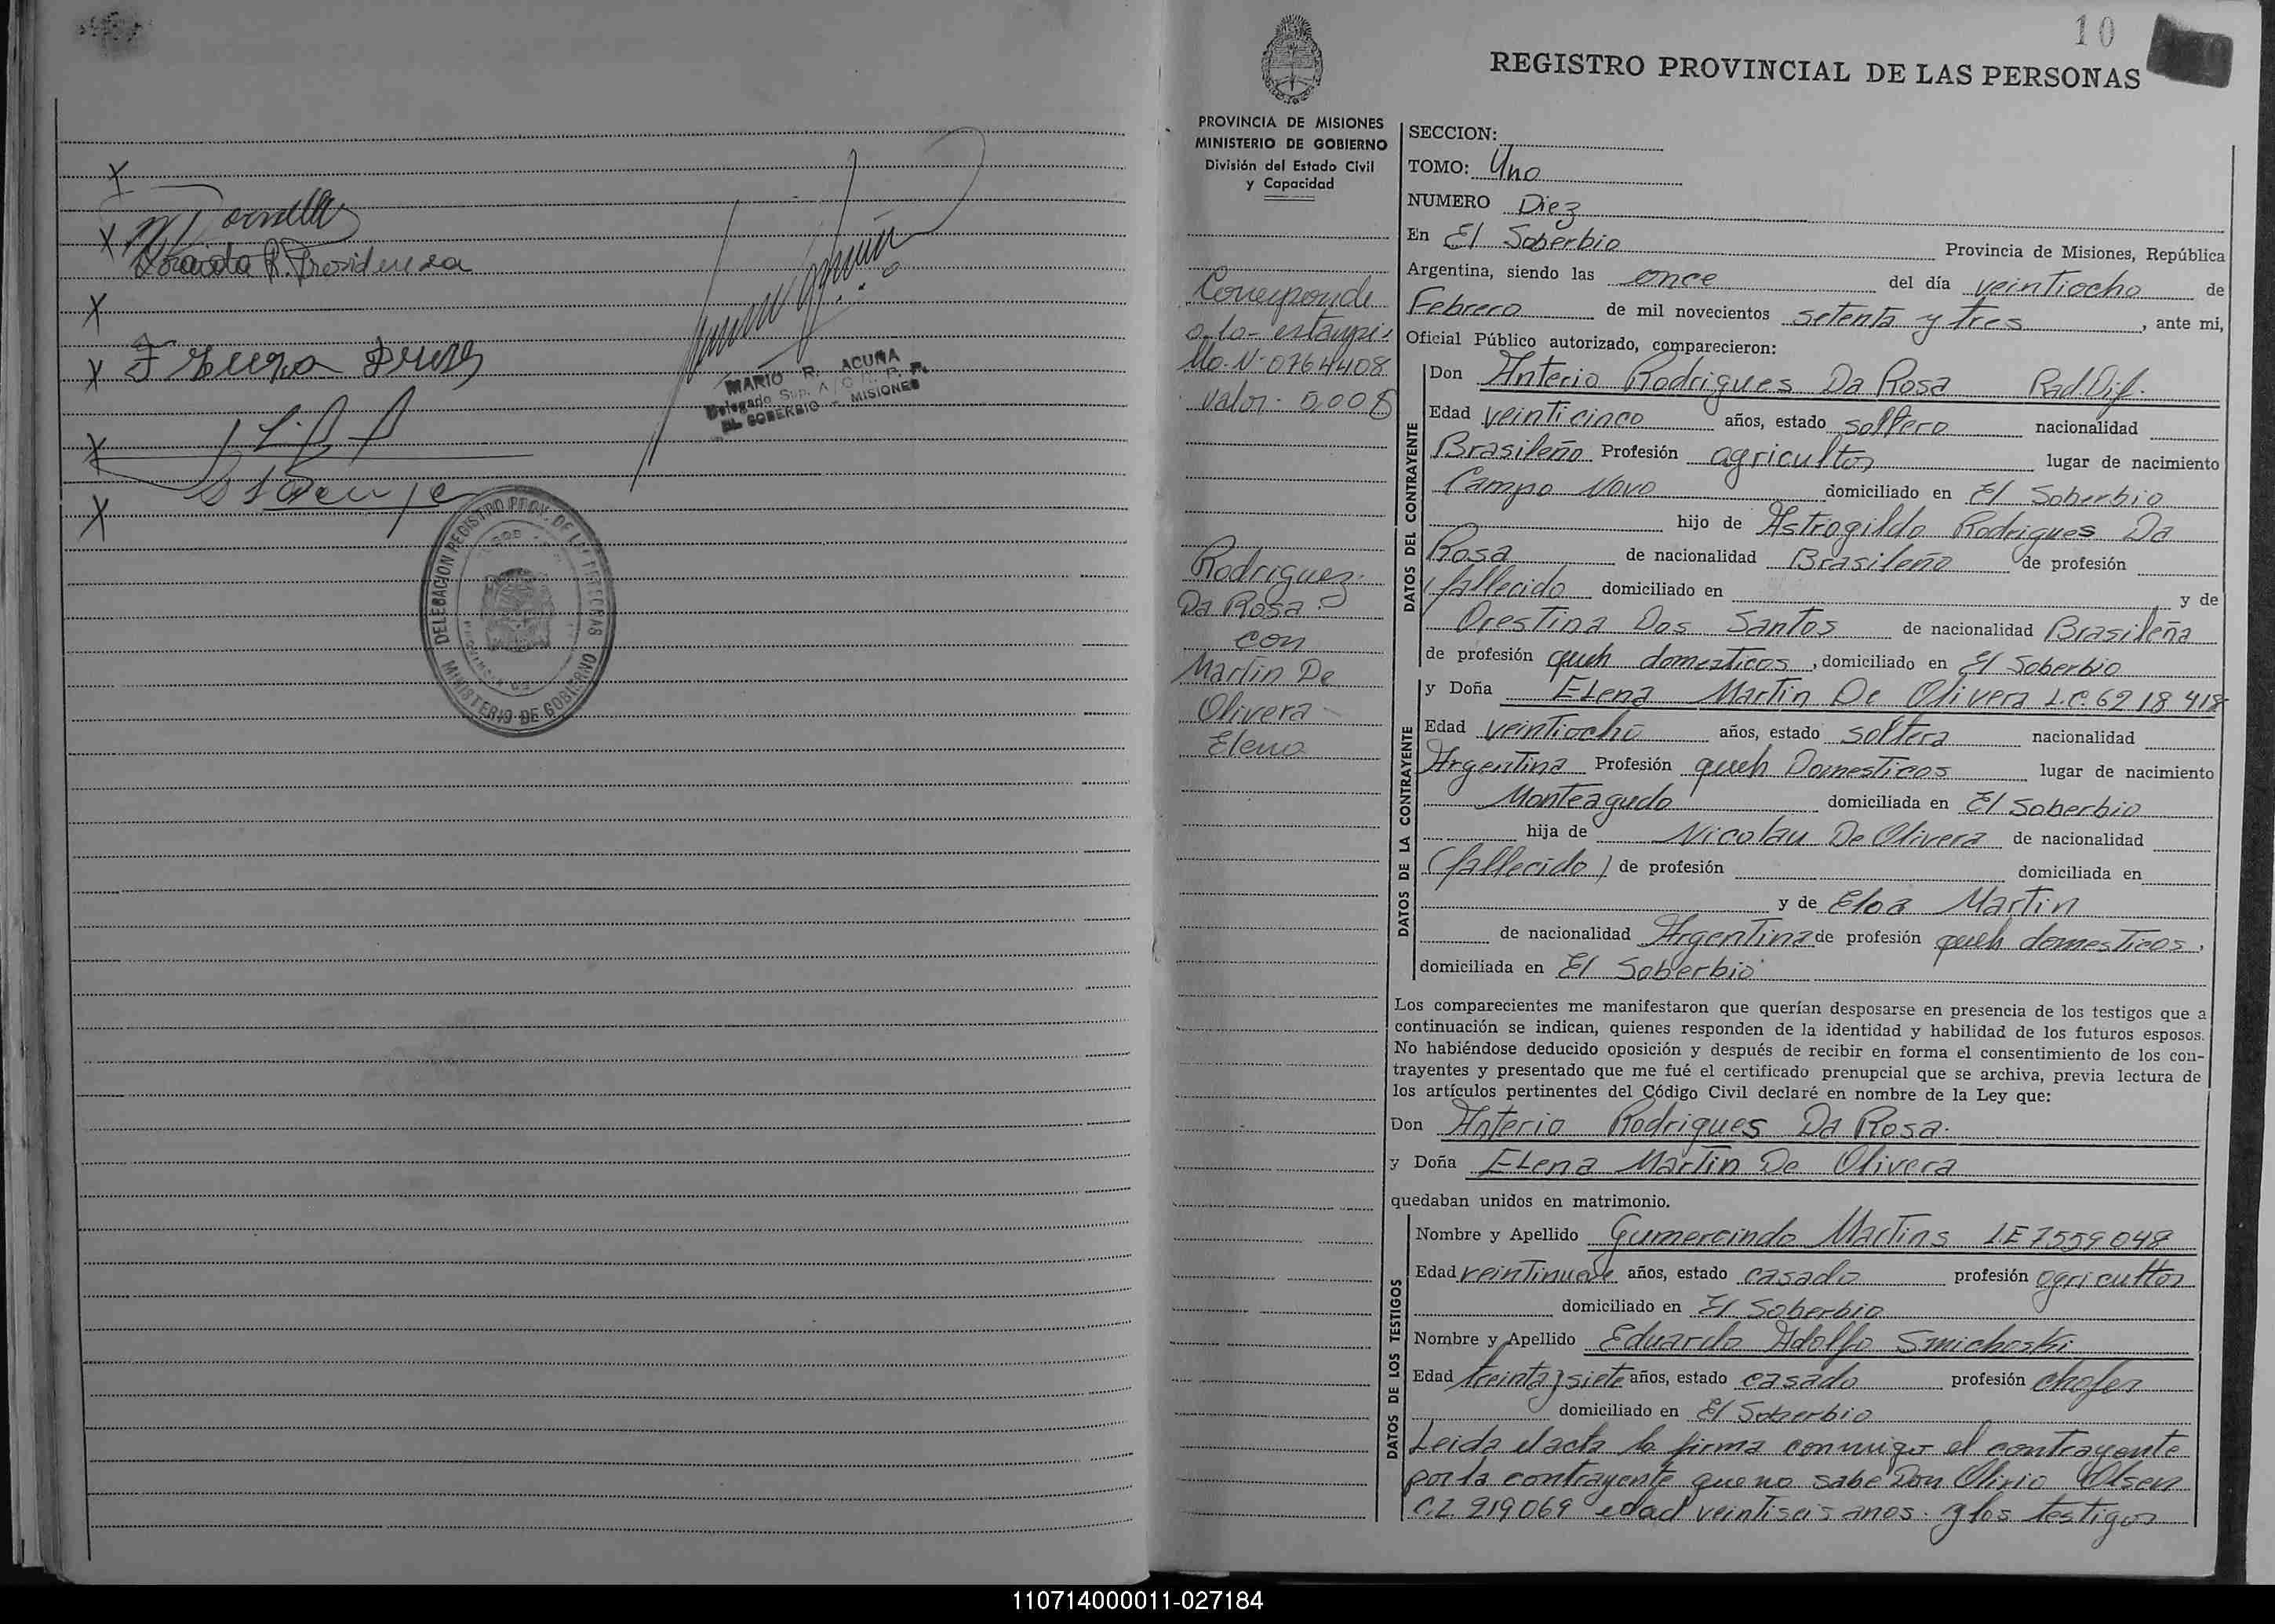 X
X
X
X
X
X
MARIO R. ACUÑA
Delegado Sup. A/C R. P. P.
EL SOBERBIO - MISIONES
DELEGACION REGISTRO PROV. DE LAS PERSONAS
MINISTERIO DE GOBIERNO
10
REGISTRO PROVINCIAL DE LAS PERSONAS
PROVINCIA DE MISIONES
MINISTERIO DE GOBIERNO
División del Estado Civil
y Capacidad
Corresponde
a la estampi
lla N° 0764408
valor 5,00 $
Rodriguez
Da Rosa
con
Martin De
Olivera
Elena
SECCION:
TOMO: Uno
NUMERO Diez
En El Soberbio Provincia de Misiones, República
Argentina, siendo las once del día veintiocho de
Febrero de mil novecientos setenta y tres, ante mi,
Oficial Público autorizado, comparecieron:
DATOS DEL CONTRAYENTE
Don Anterio Rodrigues Da Rosa Rad Dif.
Edad veinticinco años, estado soltero nacionalidad
Brasileño Profesión agricultor lugar de nacimiento
Campo Novo domiciliado en El Soberbio
hijo de Astrogildo Rodrigues Da
Rosa de nacionalidad Brasileño de profesión
fallecido domiciliado en y de
Orestina Dos Santos de nacionalidad Brasileña
de profesión queh domesticos, domiciliado en El Soberbio
DATOS DE LA CONTRAYENTE
y Doña Elena Martin De Olivera L.C. 6218418
Edad veintiocho años, estado soltera nacionalidad
Argentina Profesión queh Domesticos lugar de nacimiento
Monteagudo domiciliada en El Soberbio
hija de Nicolau De Olivera de nacionalidad
(fallecido) de profesión domiciliada en
y de Eloa Martin
de nacionalidad Argentina de profesión queh domesticos,
domiciliada en El Soberbio
Los comparecientes me manifestaron que querían desposarse en presencia de los testigos que a
continuación se indican, quienes responden de la identidad y habilidad de los futuros esposos.
No habiéndose deducido oposición y después de recibir en forma el consentimiento de los con-
trayentes y presentado que me fué el certificado prenupcial que se archiva, previa lectura de
los artículos pertinentes del Código Civil declaré en nombre de la Ley que:
Don Anterio Rodrigues Da Rosa.
y Doña Elena Martin De Olivera
quedaban unidos en matrimonio.
DATOS DE LOS TESTIGOS
Nombre y Apellido Gumercindo Martins LE 7559048
Edad veintinueve años, estado casado profesión agricultor
domiciliado en El Soberbio
Nombre y Apellido Eduardo Adolfo Smichoski
Edad treinta y siete años, estado casado profesión chofer
domiciliado en El Soberbio
Leida el acta la firma conmigo el contrayente
por la contrayente que no sabe Don Olirio Olsen
C.I. 219069 edad veintiseis anos. y los testigos
110714000011-027184